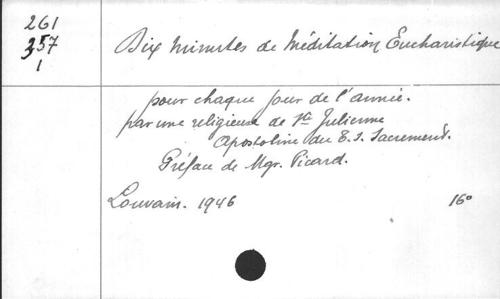 261
357
1
Dix minutes de Méditation Eucharistique
pour chaque jour de l'année.
par une religieuse de Ste Julienne
Apostoline du T. S. Sacrement.
Préface de Mgr. Picard.
Louvain. 1946 16°